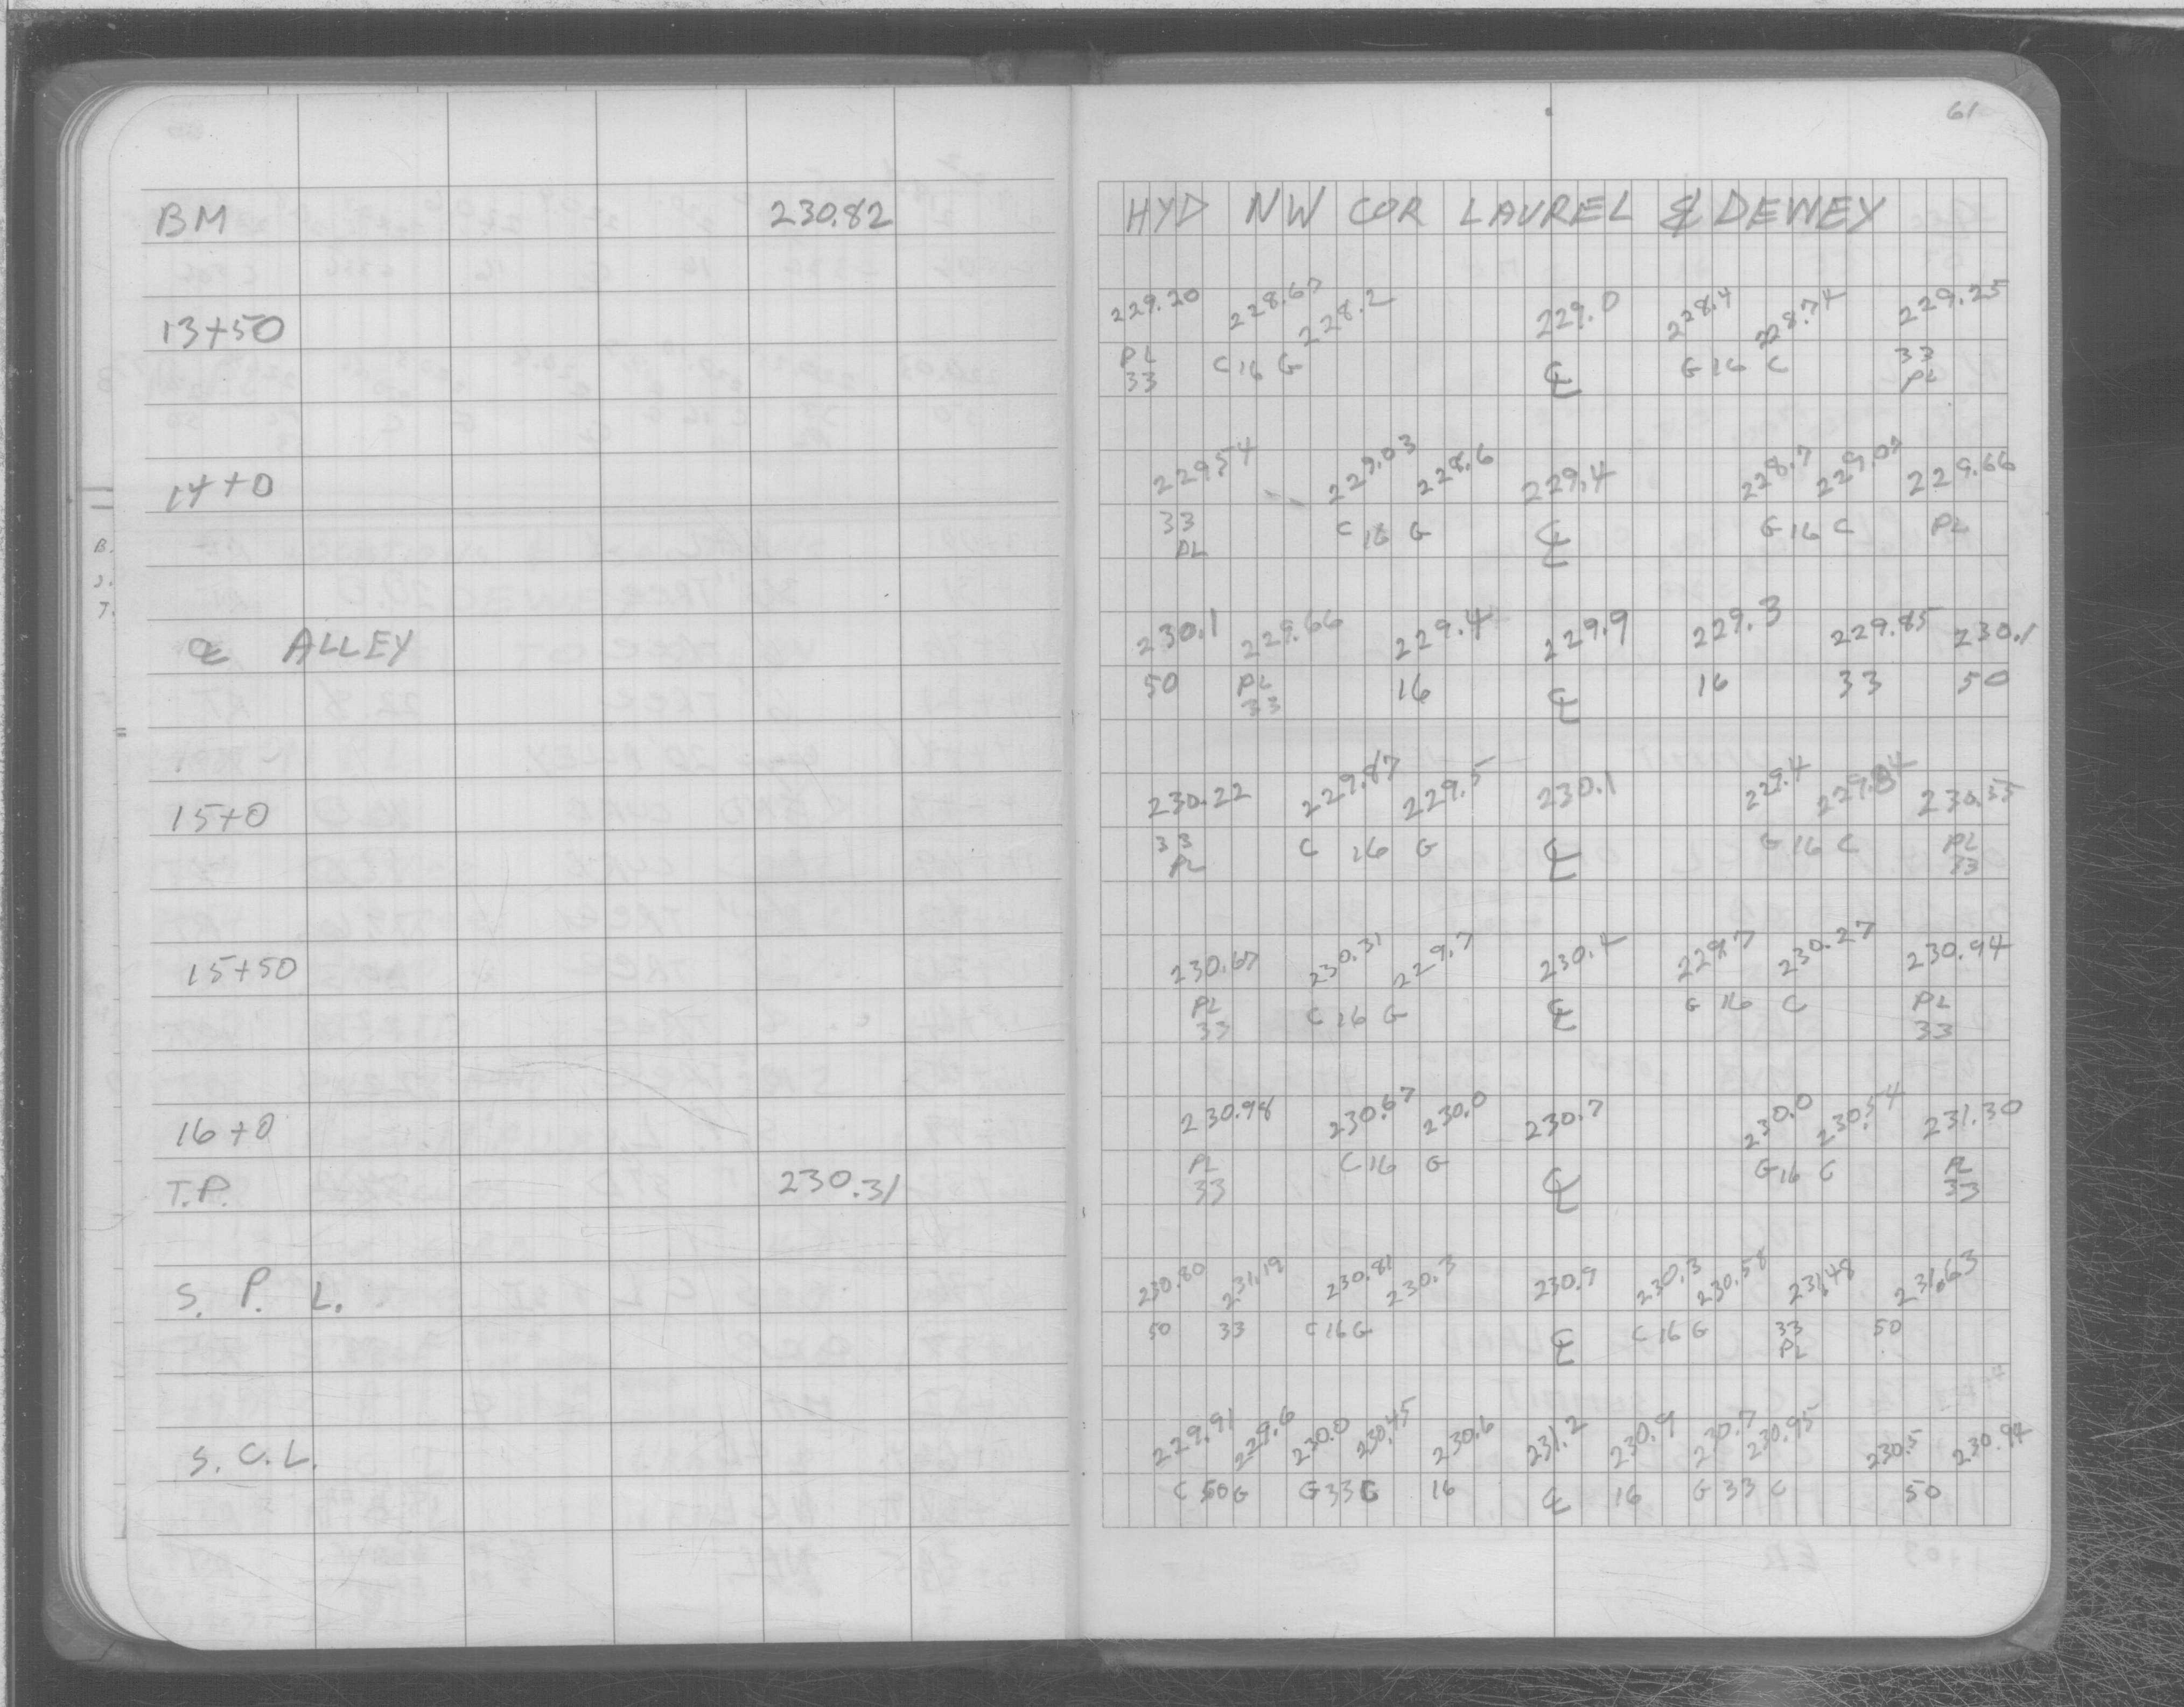 61
BM 230.82 HYD NW COR LAUREL & DEWEY
13+50 229.20 228.67 228.2 229.0 228.4 228.74 229.25
PL C 16 G ℄ G 16 C 33
33 PL
14+0 229.54 229.03 228.6 229.4 228.7 229.07 229.66
33 C 16 G ℄ G 16 C PL
PL
℄ ALLEY 230.1 229.66 229.4 229.9 229.3 229.85 230.1
50 PL 16 ℄ 16 33 50
33
15+0 230.22 229.87 229.5 230.1 229.4 230.35
33 C 16 G ℄ G 16 C PL
PL 33
15+50 230.67 230.31 229.7 230.4 229.7 230.27 230.94
PL C 16 G ℄ G 16 C PL
33 33
16+0 230.98 230.67 230.0 230.7 230.0 230.54 231.30
T.P. 230.31 PL C 16 G ℄ G 16 C PL
33 33
S. P. L. 230.80 231.19 230.81 230.3 230.9 230.3 230.58 231.48 231.63
50 33 C 16 G ℄ C 16 G 33 50
PL
S. C. L. 229.91 229.6 230.0 230.45 230.6 231.2 230.9 230.7 230.95 230.5 230.94
C 50 G G 33 C 16 ℄ 16 G 33 C 50